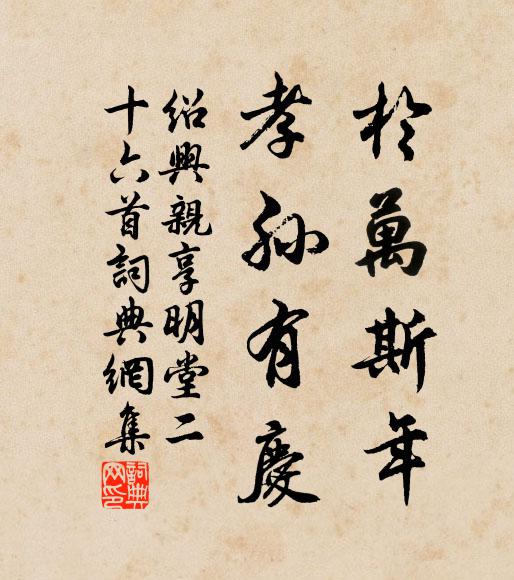 於萬斯年
孝孫有慶
紹興親享明堂二
十六首詞典網集
詞典
网印